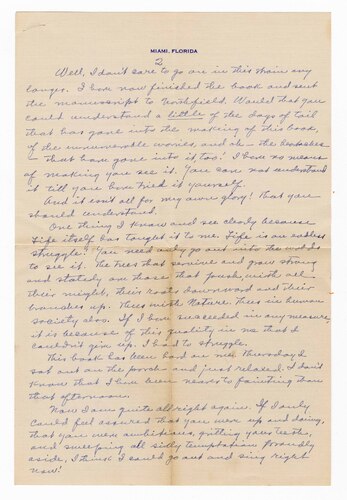 MIAMI, FLORIDA
2
Well, I don't care to go on in this strain any
longer. I have now finished the book and sent
the manuscript to Northfield. Would that you
could understand a little of the days of toil
that has gone into the making of this book,
of the innumerable worries, and oh - the heartaches
- that have gone into it, too! I have no means
of making you see it. You can not understand
it till you have tried it yourself.
And it isn't all for my own glory! That you
should understand.
One thing I know and see clearly because
Life itself has taught it to me. Life is an endless
struggle! You need only go out into the woods
to see it. The trees that survive and grow strong
and stately are those that push with all
their might, their roots downward and their
branches up. Thus with Nature. Thus in human
society also. If I have succeeded in any measure
it is because of this quality in me that I
couldn't give up. I had to struggle.
This book has been hard on me. Thursday I
sat out on the porch and just relaxed. I don't
know that I have been nearer to fainting than
that afternoon.
Now I am quite all right again. If I only
could feel assured that you were up and doing,
that you were ambitious, gritting your teeth,
and sweeping all silly temptation proudly
aside, I think I could go out and sing right
now!